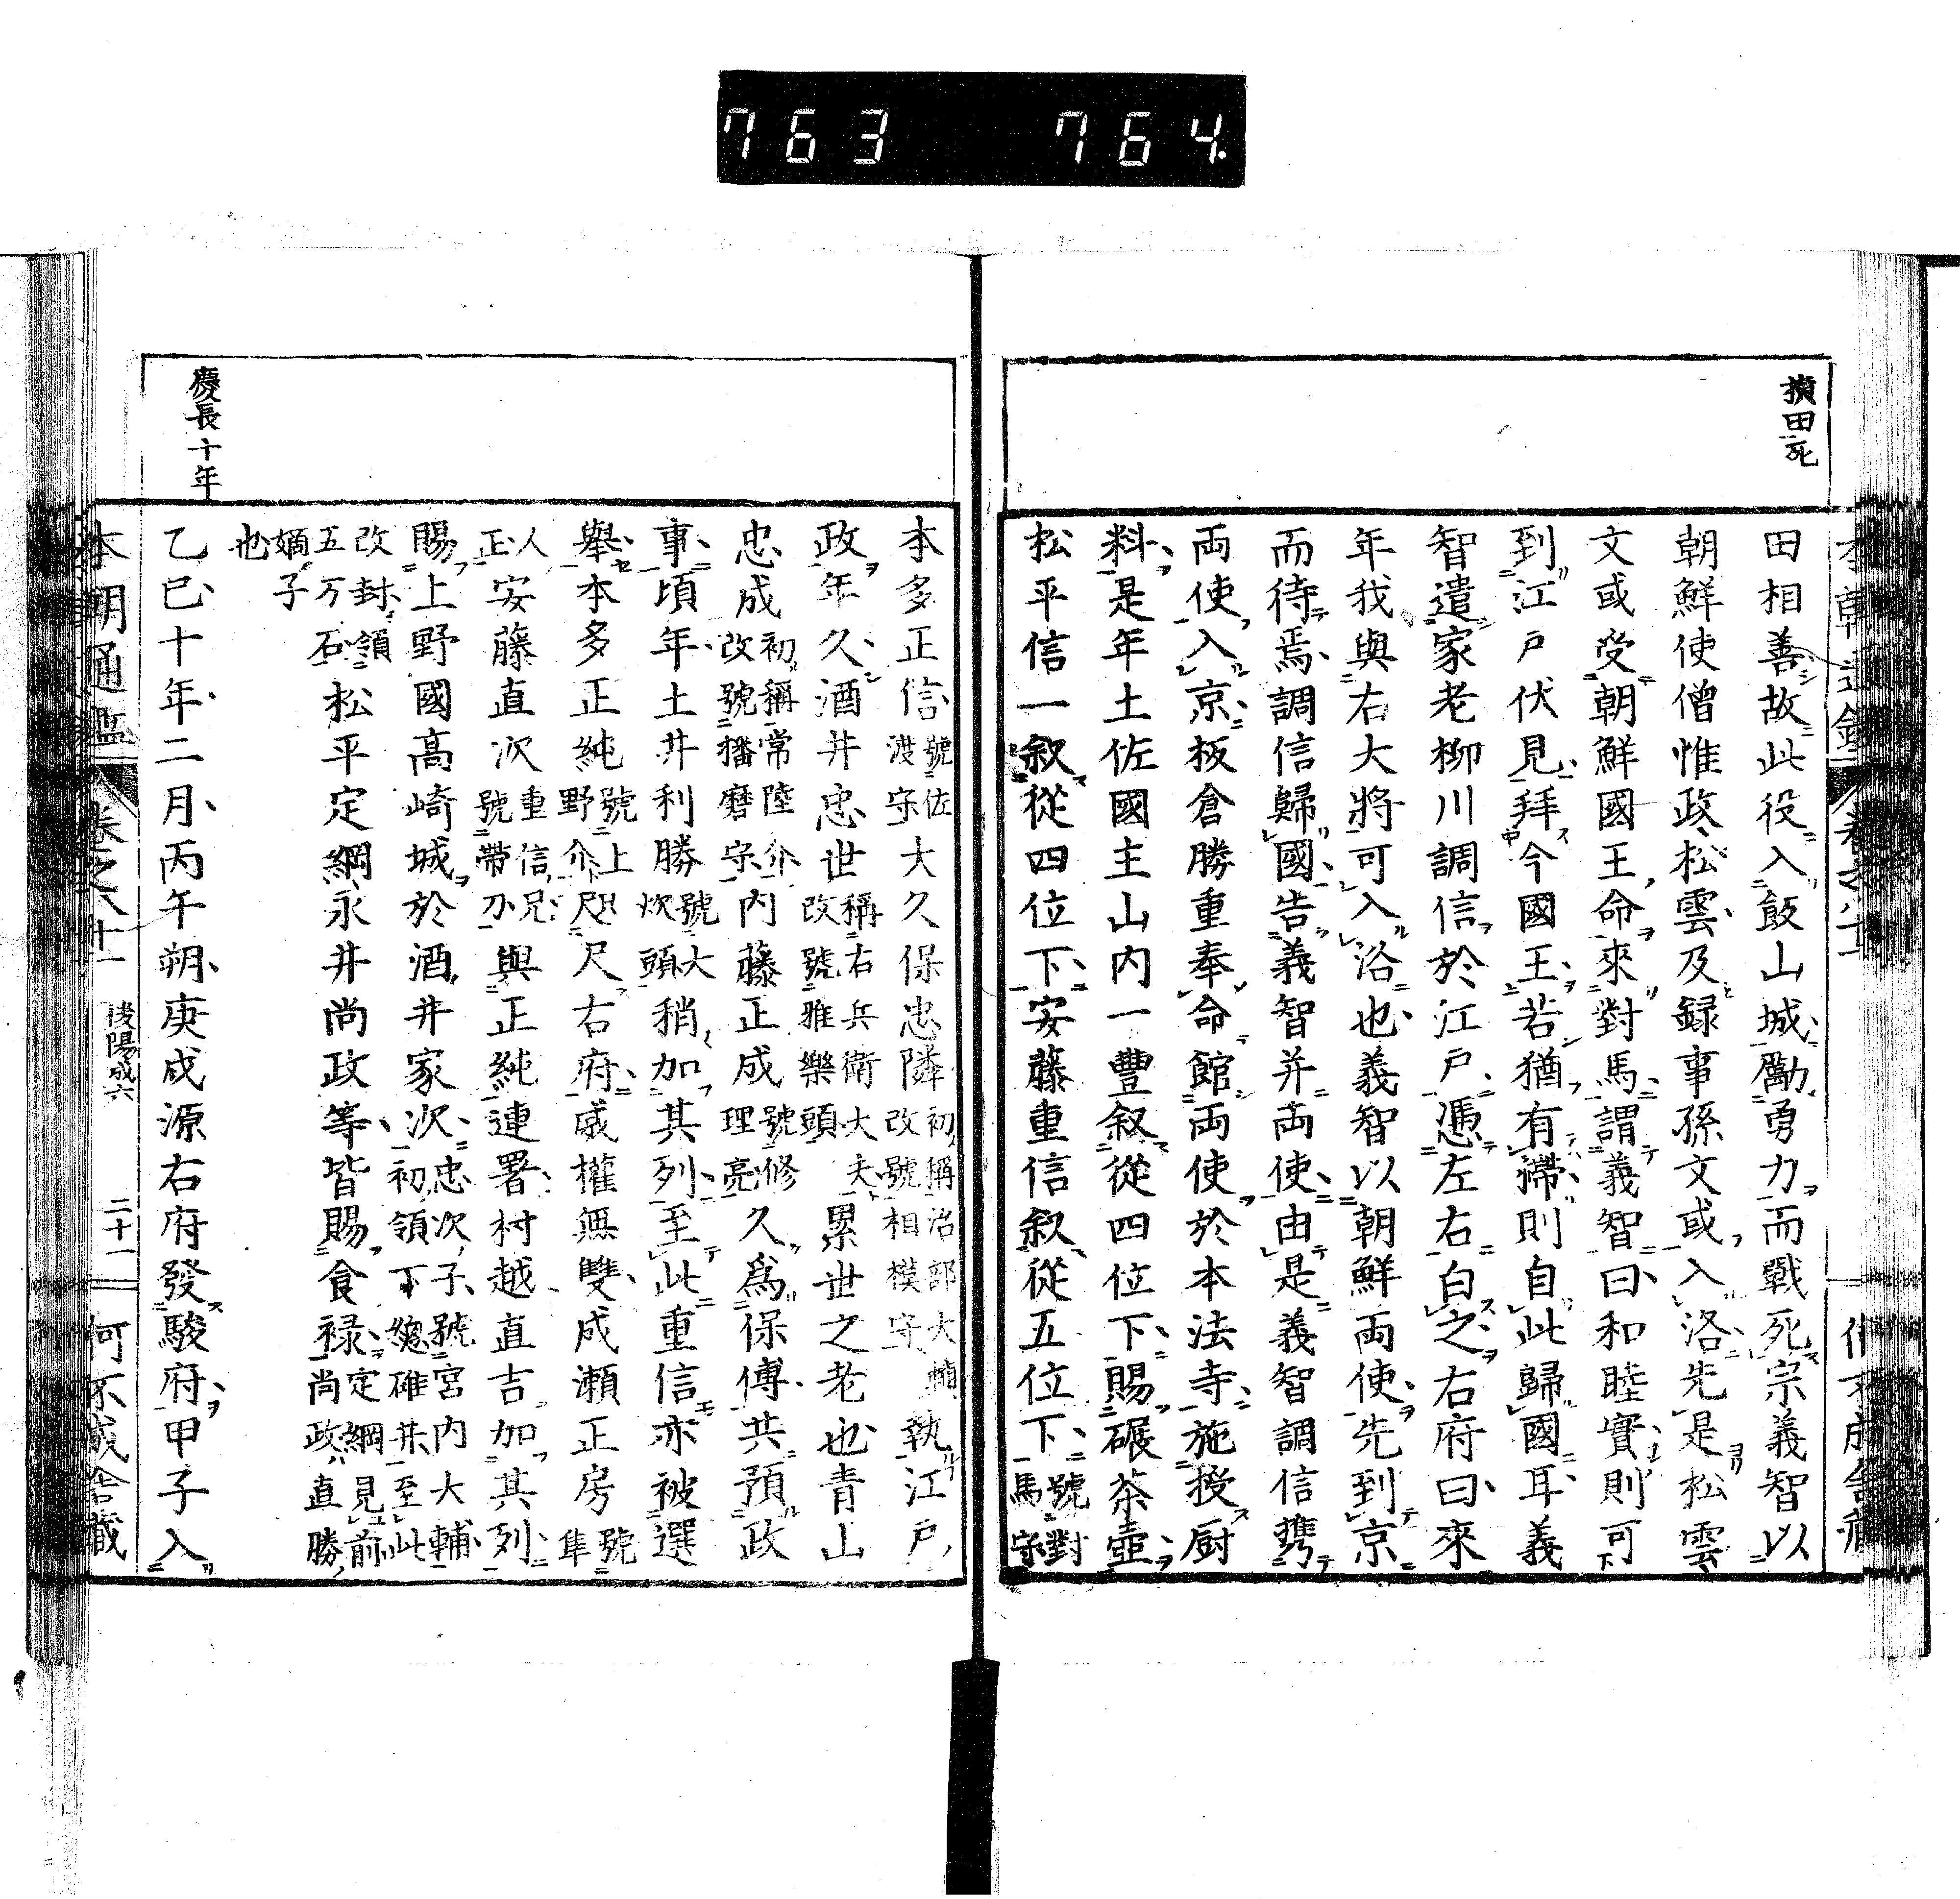 763 764
横田死
田相善故此役入飯山城勵勇力而戰死宗義智以
朝鮮使僧惟政松雲及録事孫文或入洛先是松雲
文或受朝鮮國王命來對馬謂義智曰和睦實則可
到江戸伏見拜今國王若猶有滯則自此歸國耳義
智遣家老柳川調信於江戸憑左右白之右府曰來
年我與右大將可入洛也義智以朝鮮両使先到京
而待焉調信歸國告義智并両使由是義智調信携
両使入京板倉勝重奉命館両使於本法寺施授厨
料是年土佐國主山内一豐叙從四位下賜碾茶壺
松平信一叙從四位下安藤重信叙從五位下號對馬守
本多正信號佐渡守大久保忠隣初稱治部大輔改號相模守執江戸
政年久酒井忠世稱右兵衛大夫改號雅樂頭累世之老也青山
忠成初稱常陸介改號播磨守内藤正成號修理亮久爲保傅共預政
事頃年土井利勝號大炊頭稍加其列至此重信亦被選
舉本多正純號上野介咫尺右府威權無雙成瀬正房號隼
人正安藤直次重信兄號帶刀與正純連署村越直吉加其列
賜上野國高崎城於酒井家次忠次子號宮内大輔初領下總碓井至此
改封領五万石松平定綱永井尚政等皆賜食禄定綱見前尚政直勝
嫡子也
慶長十年
乙巳十年二月丙午朔庚戌源右府發駿府甲子入
本朝通鑑 卷之八十一 後陽成六 二十一